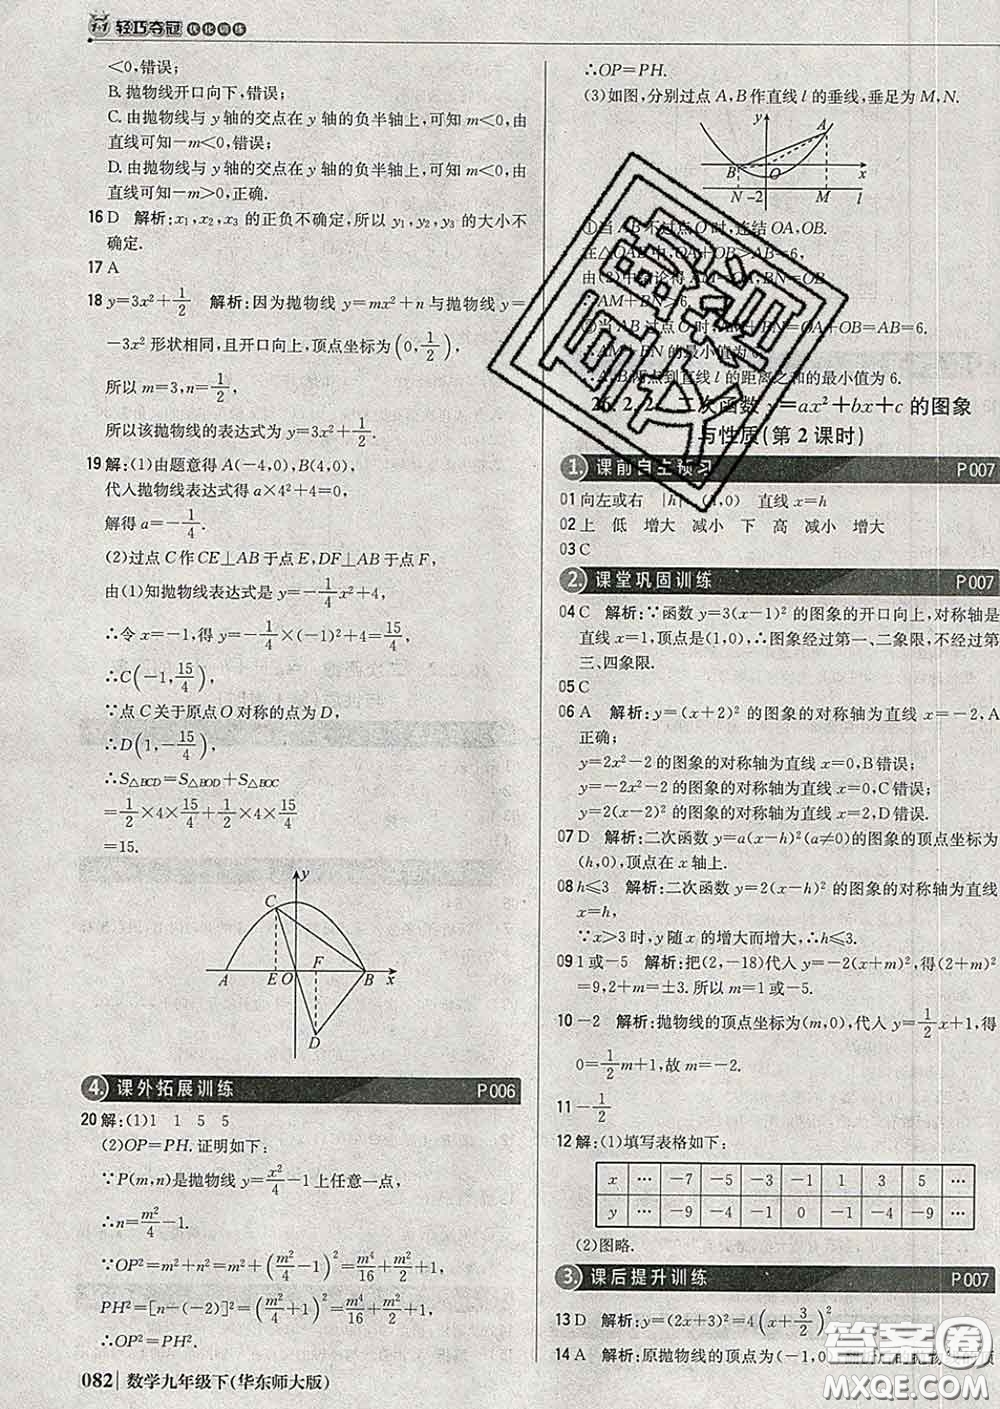 1+1 轻巧夺冠 优化训练
<0,错误;
B. 抛物线开口向下,错误;
C. 由抛物线与 y 轴的交点在 y 轴的负半轴上,可知 m<0,由
直线可知-m<0,错误;
D. 由抛物线与 y 轴的交点在 y 轴的负半轴上,可知 m<0,由
直线可知-m>0,正确.
16 D 解析:x₁,x₂,x₃ 的正负不确定,所以 y₁,y₂,y₃ 的大小不
确定.
17 A
18 y=3x²+1/2 解析:因为抛物线 y=mx²+n 与抛物线 y=
-3x² 形状相同,且开口向上,顶点坐标为(0,1/2),
所以 m=3,n=1/2,
所以该抛物线的表达式为 y=3x²+1/2.
19 解:(1)由题意得 A(-4,0),B(4,0),
代人抛物线表达式得 a×4²+4=0,
解得 a=-1/4.
(2)过点 C 作 CE⊥AB 于点 E,DF⊥AB 于点 F,
由(1)知抛物线表达式是 y=-1/4x²+4,
∴令 x=-1,得 y=-1/4×(-1)²+4=15/4,
∴C(-1,15/4),
∵点 C 关于原点 O 对称的点为 D,
∴D(1,-15/4),
∴S△BCD=S△BOD+S△BOC
=1/2×4×15/4+1/2×4×15/4
=15.
y
C
A E O F B x
D
4. 课外拓展训练 P006
20 解:(1)1 1 5 5
(2)OP=PH. 证明如下:
∵P(m,n)是抛物线 y=x²/4-1 上任意一点,
∴n=m²/4-1.
∵OP²=m²+n²=m²+(m²/4-1)²=m⁴/16+m²/2+1,
PH²=[n-(-2)]²=(m²/4+1)²=m⁴/16+m²/2+1,
∴OP²=PH².
082 数学九年级下(华东师大版)
∴OP=PH.
(3)如图,分别过点 A,B 作直线 l 的垂线,垂足为 M,N.
y
A
B O x
N -2 M l
①当 AB 不过点 O 时,连结 OA,OB.
在△OAB 中,OA+OB>AB=6,
由(2)中结论得 AM=OA,BN=OB
∴AM+BN>6.
②当 AB 过点 O 时,AM+BN=OA+OB=AB=6.
∴AM+BN 的最小值为 6.
∴A,B 两点到直线 l 的距离之和的最小值为 6.
26.2.2 二次函数 y=ax²+bx+c 的图象
与性质(第 2 课时)
1. 课前自主预习 P007
01 向左或右 |h| (h,0) 直线 x=h
02 上 低 增大 减小 下 高 减小 增大
03 C
2. 课堂巩固训练 P007
04 C 解析:∵函数 y=3(x-1)² 的图象的开口向上,对称轴是
直线 x=1,顶点是(1,0),∴图象经过第一、二象限,不经过第
三、四象限.
05 C
06 A 解析:y=(x+2)² 的图象的对称轴为直线 x=-2,A
正确;
y=2x²-2 的图象的对称轴为直线 x=0,B错误;
y=-2x²-2 的图象的对称轴为直线 x=0,C错误;
y=2(x-2)² 的图象的对称轴为直线 x=2,D错误.
07 D 解析:二次函数 y=a(x-h)²(a≠0)的图象的顶点坐标为
(h,0),顶点在 x 轴上.
08 h≤3 解析:二次函数 y=2(x-h)² 的图象的对称轴为直线
x=h,
∵x>3 时,y 随 x 的增大而增大,∴h≤3.
09 1 或-5 解析:把(2,-18)代人 y=-2(x+m)²,得(2+m)²
=9,2+m=±3. 所以 m=1 或-5.
10 -2 解析:抛物线的顶点坐标为(m,0),代人 y=1/2x+1,得
0=1/2m+1,故 m=-2.
11 -1/2
12 解:(1)填写表格如下:
x … -7 -5 -3 -1 1 3 5 …
y … -9 -4 -1 0 -1 -4 -9 …
(2)图略.
3. 课后提升训练 P007
13 D 解析:y=(2x+3)²=4(x+3/2)²
14 A 解析:原抛物线的顶点为(-1,
答案圈